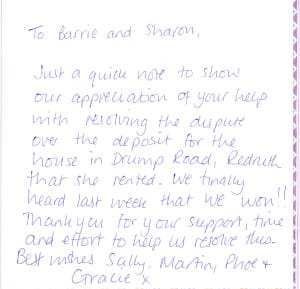 To Barrie and Sharon,
Just a quick note to show
our appreciation of your help
with resolving the dispute
over the deposit for the
house in Drump Road, Redruth
that she rented. We finally
heard last week that we won!!
Thankyou for your support, time
and effort to help us resolve this.
Best wishes Sally, Martin, Phoe +
Gracie x